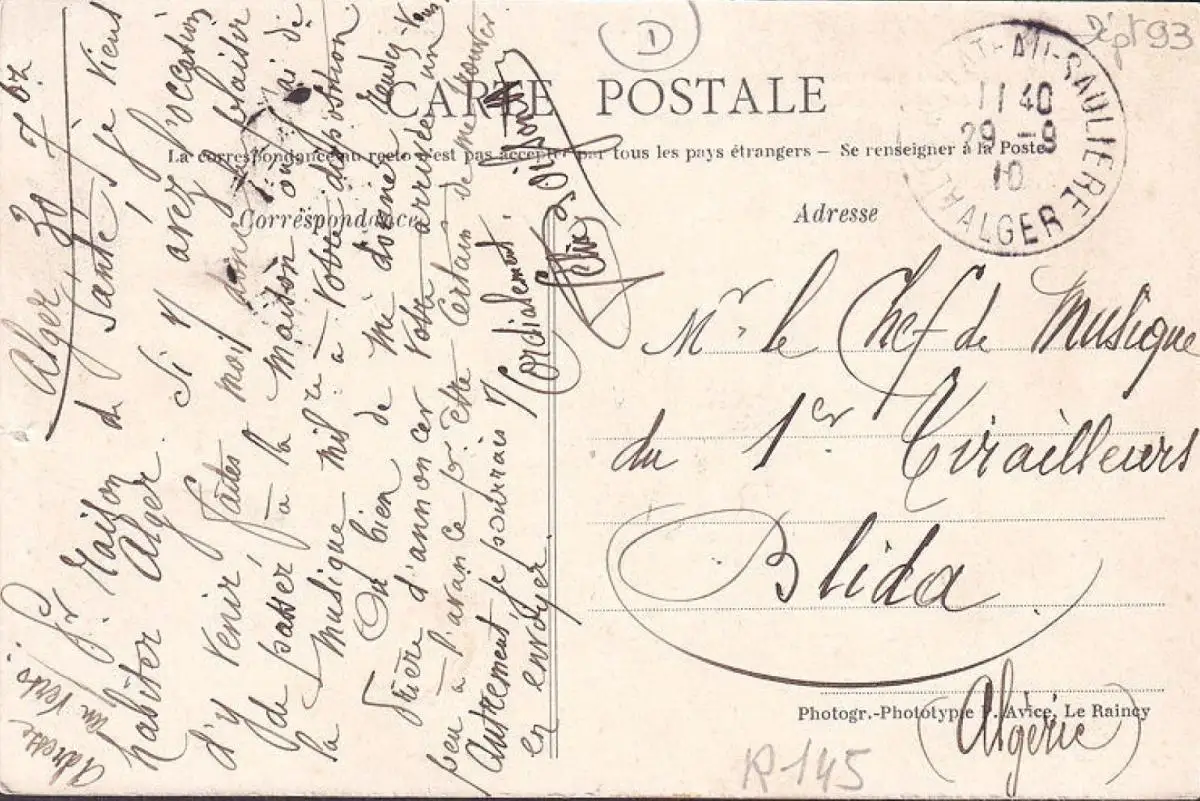 Dépt 93
D
CARTE POSTALE
La correspondance au recto n'est pas acceptée par tous les pays étrangers — Se renseigner à la Poste
Correspondance
Adresse
AGHA-SAULIERE
11 40
29 -9
10
ALGER
Mr le Chef de Musique
du 1er Tirailleurs
Blida
(Algérie)
Photogr.-Phototypie P. Avice, Le Raincy
R 145
Adresse
au Verso
Alger, 30 7
Pr. Raison de Santé, je viens
habiter Alger. Si vs avez l'occasion
d'y venir faites moi donc le plaisir
de passer à la maison où j'ai de
la musique milre à votre disposition
Ou bien de me donner rendez-vous
Prière d'annoncer votre arrivée un
peu à l'avance pr être certain de me trouver
Autrement je pourrais vs
en envoyer.
Cordialement